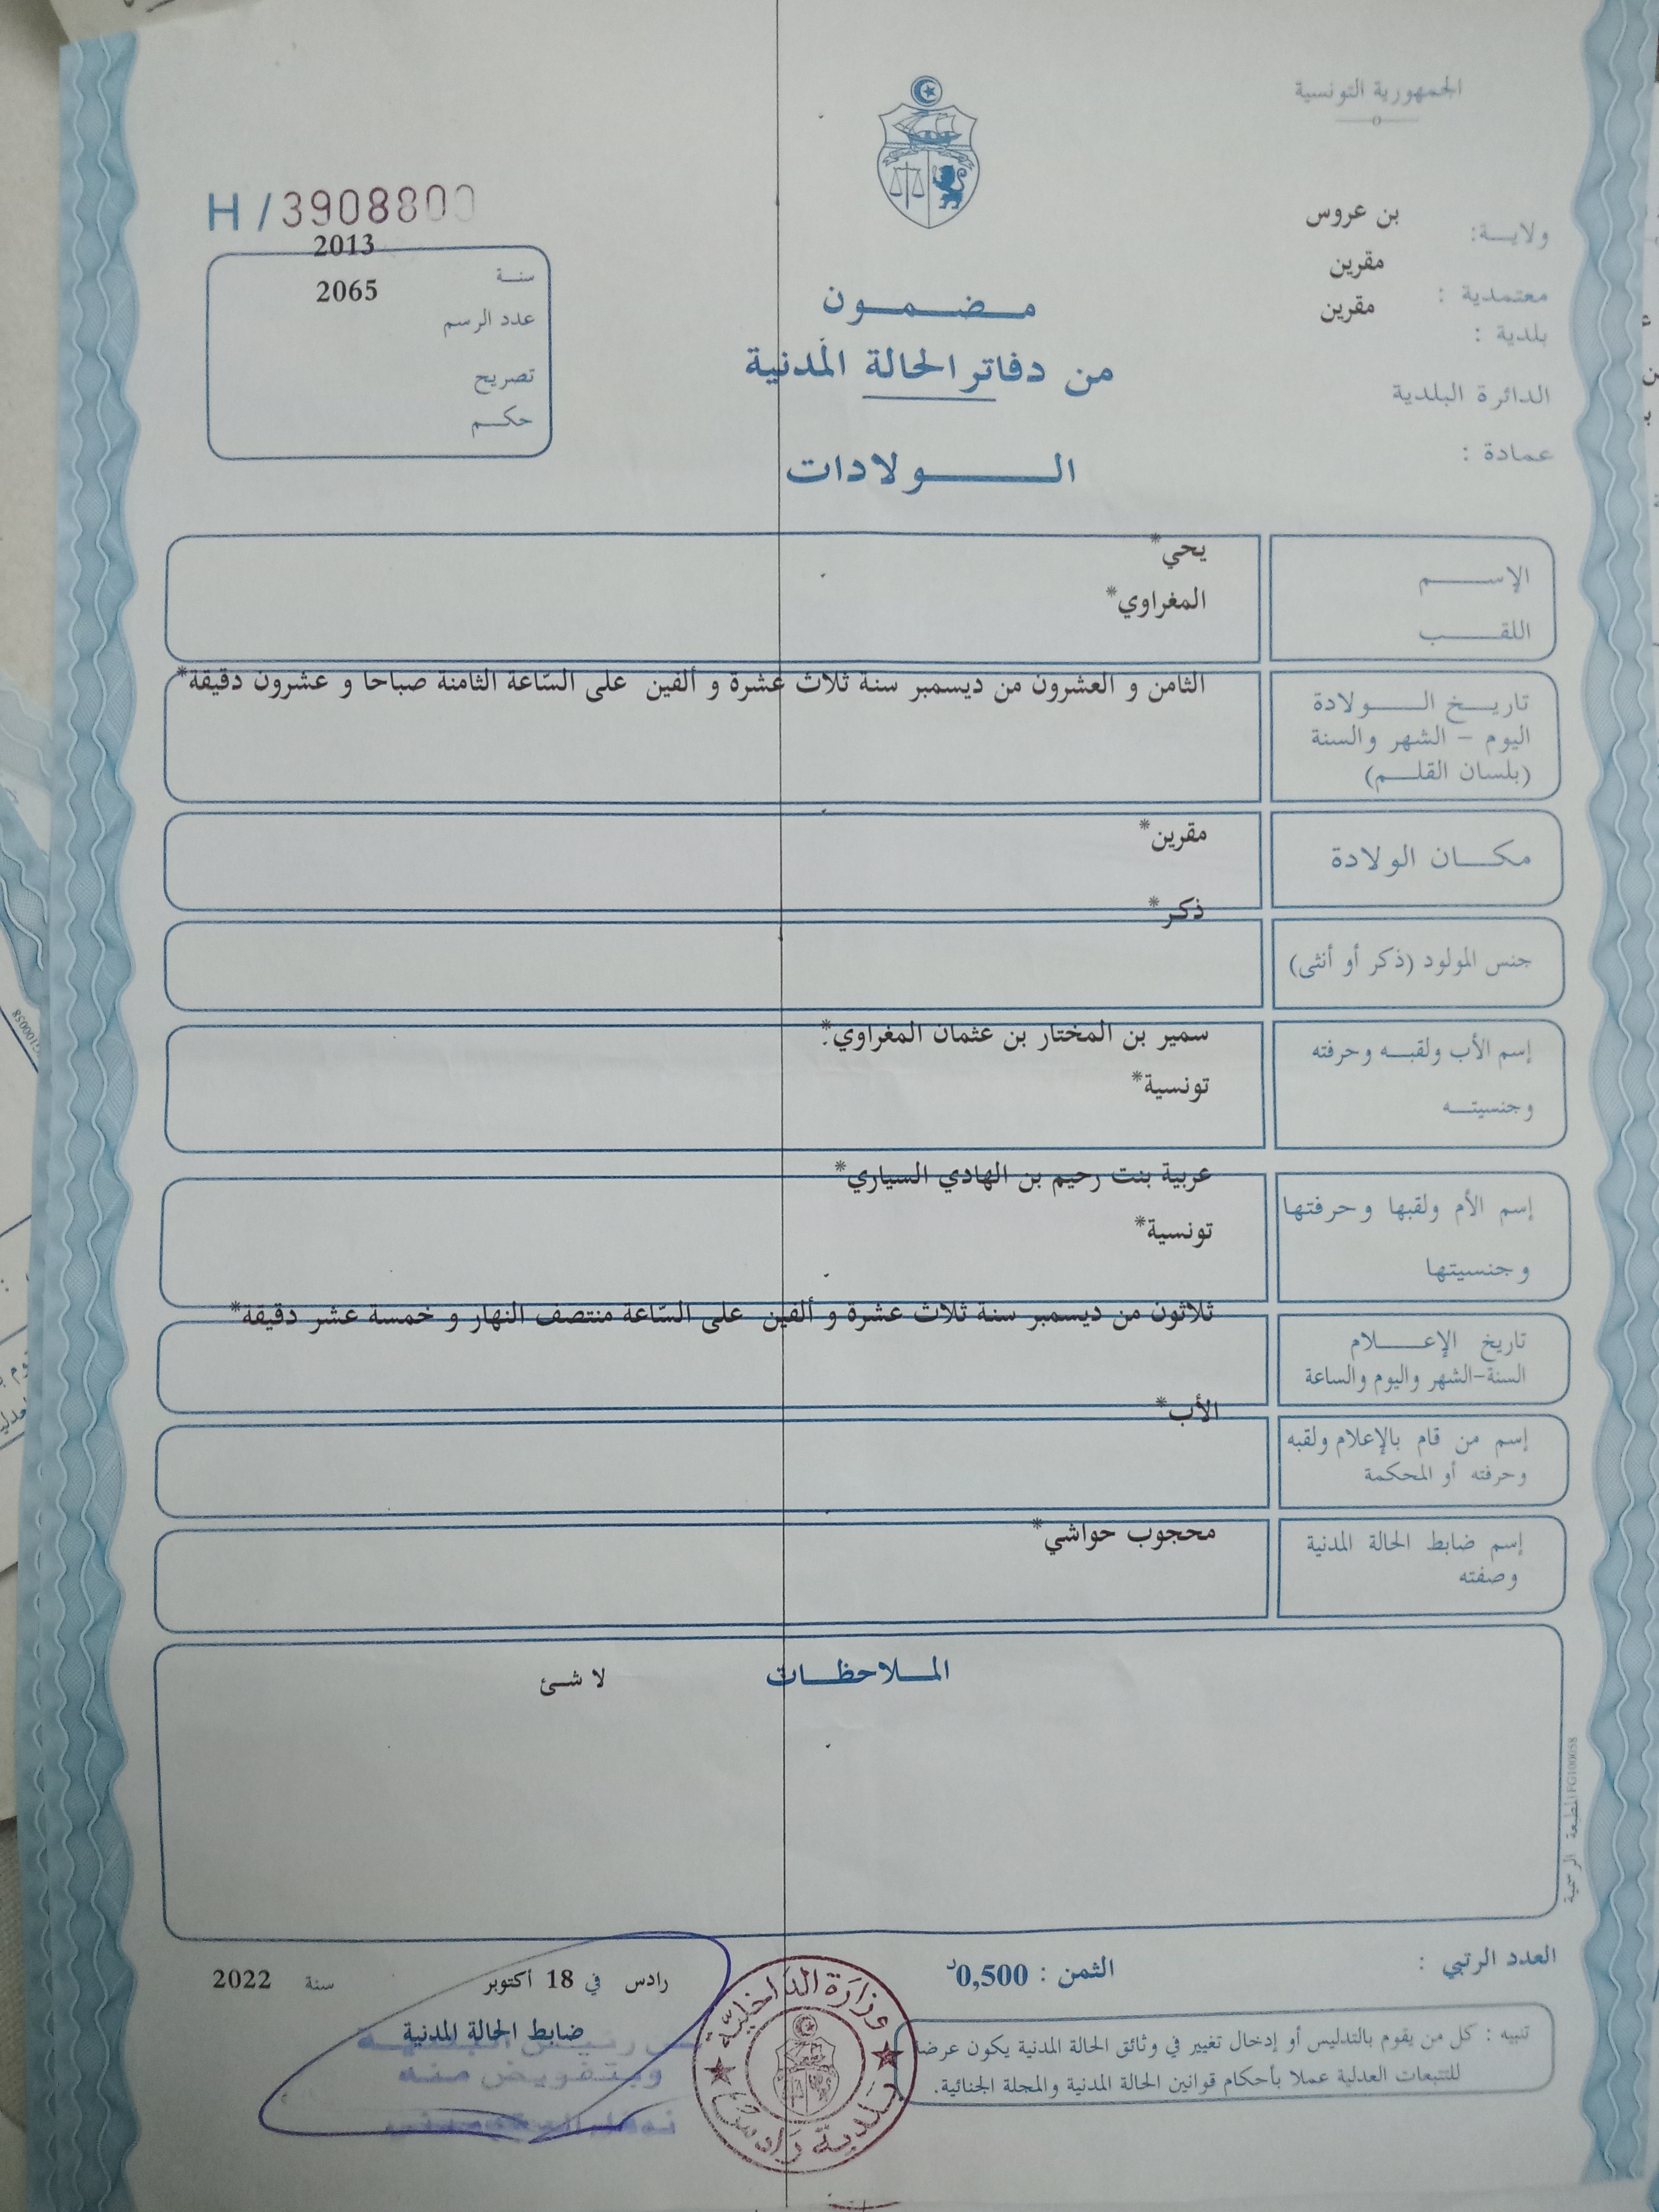 الجمهورية التونسية
ولاية: بن عروس
معتمدية : مقرين
بلدية : مقرين
الدائرة البلدية
عمادة :
H / 390880
سنة 2013
عدد الرسم 2065
تصريح
حكم
مضمون
من دفاتر الحالة المدنية
الولادات
الإسم يحي*
اللقب المغراوي*
تاريخ الولادة
اليوم - الشهر والسنة
(بلسان القلم)
الثامن و العشرون من ديسمبر سنة ثلاث عشرة و ألفين على السّاعة الثامنة صباحا و عشرون دقيقة*
مكان الولادة مقرين*
جنس المولود (ذكر أو أنثى) ذكر*
إسم الأب ولقبه وحرفته سمير بن المختار بن عثمان المغراوي*
وجنسيته تونسية*
إسم الأم ولقبها وحرفتها عربية بنت رحيم بن الهادي السياري*
وجنسيتها تونسية*
تاريخ الإعلام
السنة-الشهر واليوم والساعة
ثلاثون من ديسمبر سنة ثلاث عشرة و ألفين على السّاعة منتصف النهار و خمسة عشر دقيقة*
إسم من قام بالإعلام ولقبه
وحرفته أو المحكمة
الأب*
إسم ضابط الحالة المدنية
وصفته
محجوب حواشي*
الملاحظات لا شئ
المطبعة الرسمية FG100058
العدد الرتبي :
الثمن : 0,500د
رادس في 18 أكتوبر سنة 2022
ضابط الحالة المدنية
رئيس البلدية
وبتفويض منه
وزارة الداخلية
بلدية رادس
تنبيه : كل من يقوم بالتدليس أو إدخال تغيير في وثائق الحالة المدنية يكون عرضة
للتتبعات العدلية عملا بأحكام قوانين الحالة المدنية والمجلة الجنائية.